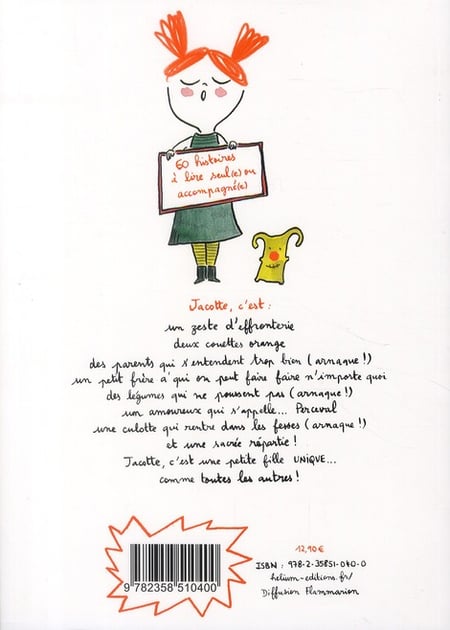 60 histoires
à lire seul(e) ou
accompagné(e)
Jacotte, c'est :
un zeste d'effronterie
deux couettes orange
des parents qui s'entendent trop bien (arnaque !)
un petit frère à qui on peut faire faire n'importe quoi
des légumes qui ne poussent pas (arnaque !)
un amoureux qui s'appelle... Perceval
une culotte qui rentre dans les fesses (arnaque !)
et une sacrée répartie !
Jacotte, c'est une petite fille UNIQUE...
comme toutes les autres !
12,90 €
ISBN : 978-2-35851-040-0
helium-editions.fr/
Diffusion Flammarion
9 782358 510400